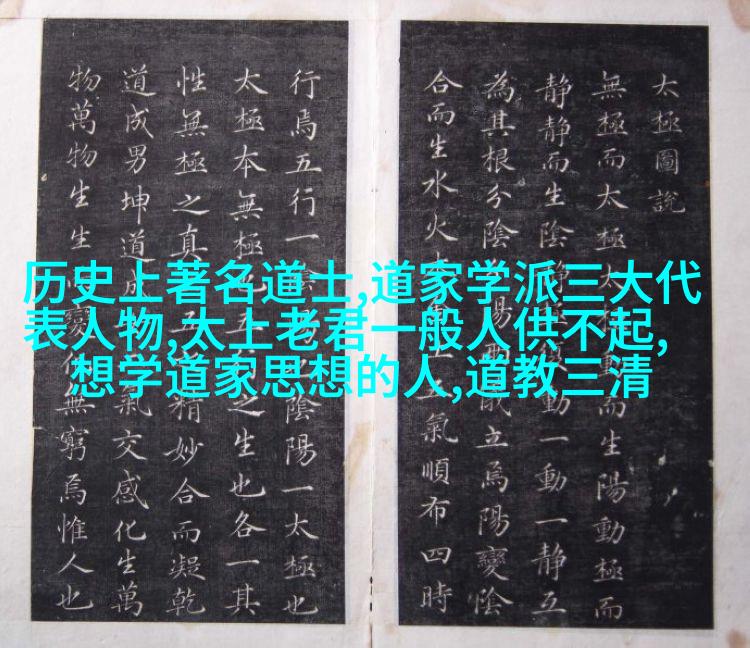 太極圖說
無極而太極太極動而生陽動極而
静静而生陰静極復動一動一静互
為其根分陰分陽兩儀立焉陽變陰
合而生水火土五氣順布四時
行焉五行一陰陽也陰陽一太極也
太極本無極也五行之生也各一其
性無極之真五之精妙合而凝乾
道成男坤道成氣交感化生萬
物萬物生生變化無窮焉惟人也
历史上著名道士,道家学派三大代
表人物,太上老君一般人供不起,
想学道家思想的人,道教三清